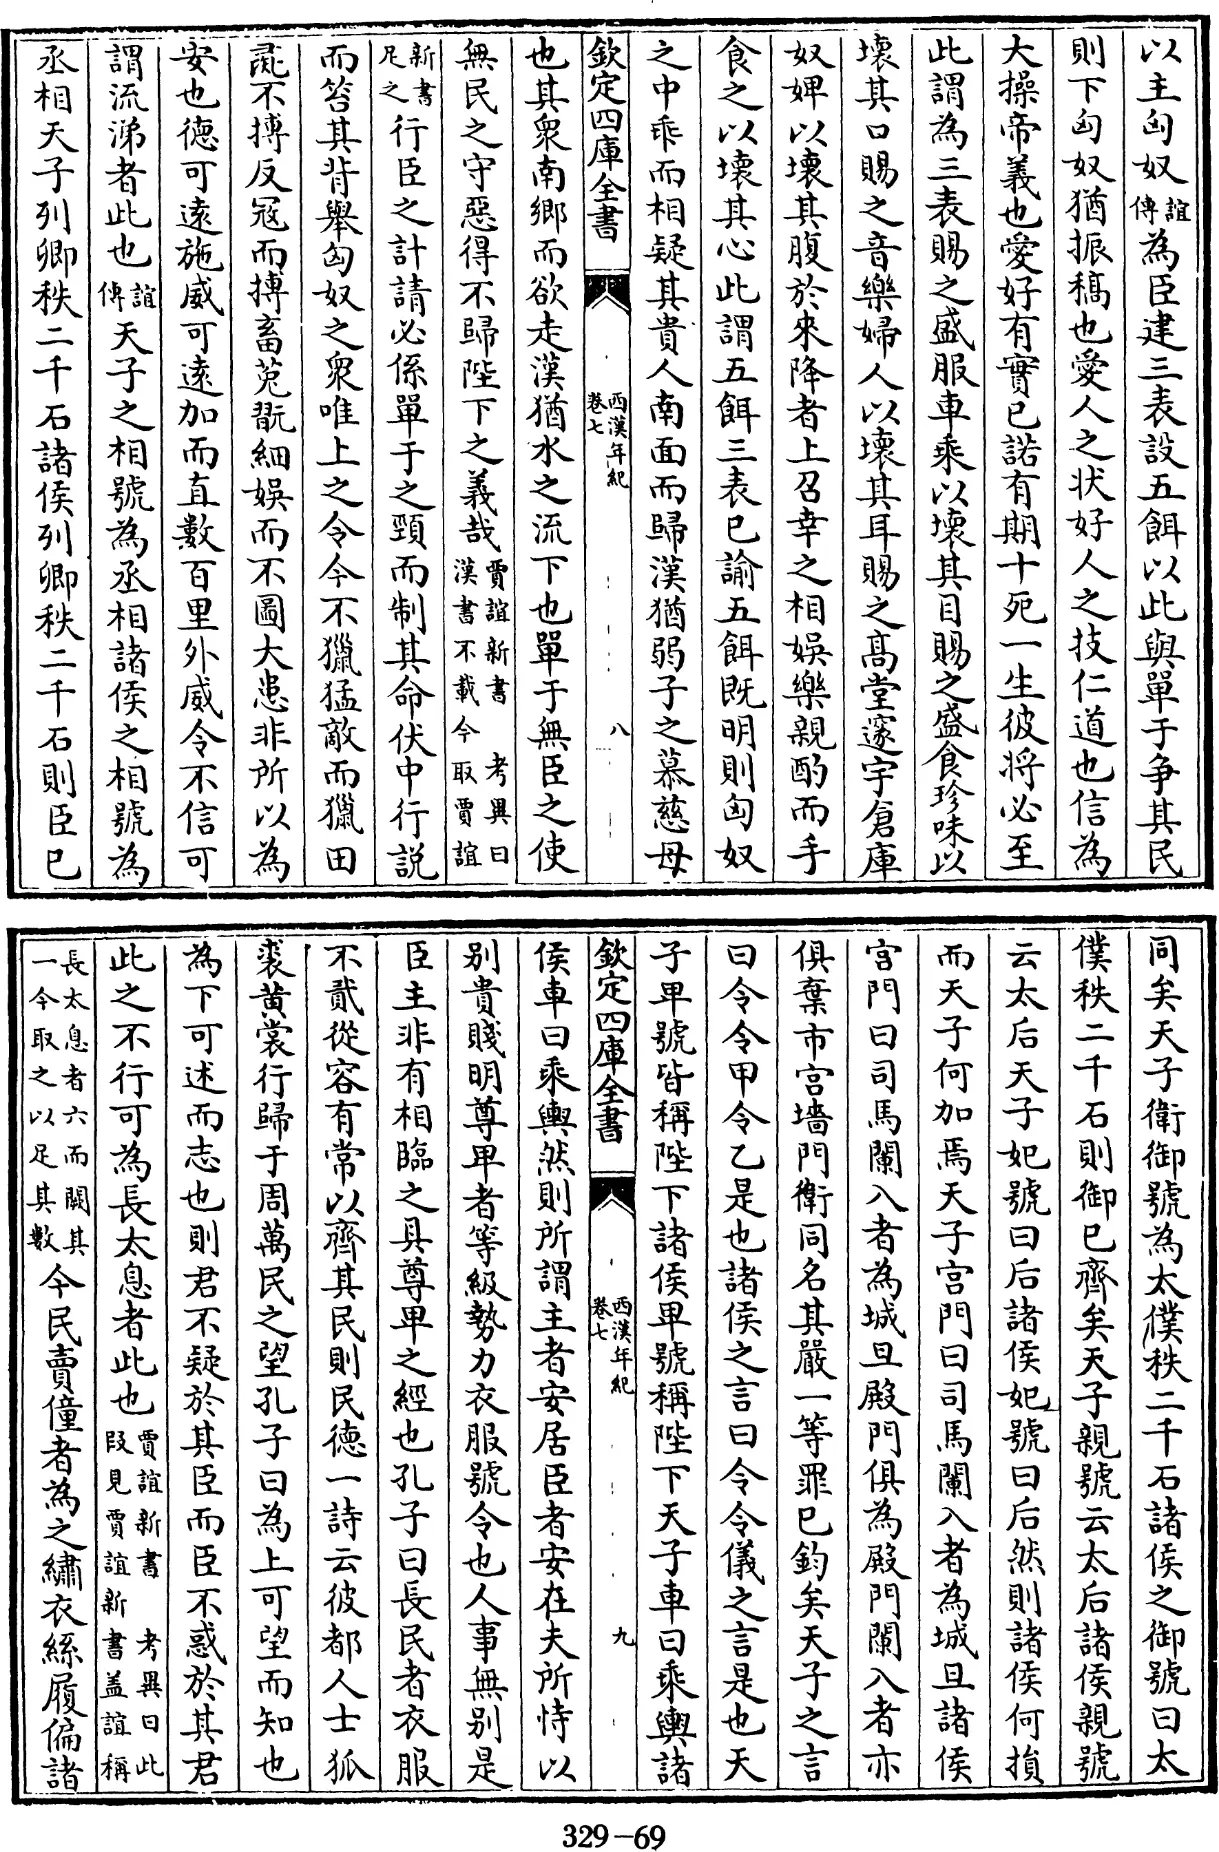 以主匈奴誼傳為臣建三表設五餌以此與單于争其民
則下匈奴猶振稿也愛人之狀好人之技仁道也信為
大操帝義也愛好有實已諾有期十死一生彼将必至
此謂為三表賜之盛服車乘以壞其目賜之盛食珍味以
壞其口賜之音樂婦人以壞其耳賜之髙堂邃宇倉庫
奴婢以壞其腹於來降者上召幸之相娯樂親酌而手
食之以壞其心此謂五餌三表已諭五餌既明則匈奴
之中乖而相疑其貴人南面而歸漢猶弱子之慕慈母
欽定四庫全書
西漢年紀
卷七
八
也其衆南鄉而欲走漢猶水之流下也單于無臣之使
無民之守惡得不歸陛下之義哉賈誼新書 考異曰漢書不載今取賈誼
新書足之行臣之計請必係單于之頸而制其命伏中行説
而笞其背舉匈奴之衆唯上之令今不獵猛敵而獵田
彘不搏反寇而搏畜菟翫細娯而不圖大患非所以為
安也德可遠施威可遠加而直數百里外威令不信可
謂流涕者此也誼傳天子之相號為丞相諸侯之相號為
丞相天子列卿秩二千石諸侯列卿秩二千石則臣已
同矣天子衛御號為太僕秩二千石諸侯之御號曰太
僕秩二千石則御已齊矣天子親號云太后諸侯親號
云太后天子妃號曰后諸侯妃號曰后然則諸侯何損
而天子何加焉天子宫門曰司馬闌入者為城旦諸侯
宫門曰司馬闌入者為城旦殿門俱為殿門闌入者亦
俱棄市宫墻門衛同名其嚴一等罪已鈞矣天子之言
曰令令甲令乙是也諸侯之言曰令令儀之言是也天
子卑號皆稱陛下諸侯卑號稱陛下天子車曰乘輿諸
欽定四庫全書
西漢年紀
卷七
九
侯車曰乘輿然則所謂主者安居臣者安在夫所恃以
别貴賤明尊卑者等級勢力衣服號令也人事無别是
臣主非有相臨之具尊卑之經也孔子曰長民者衣服
不貳從容有常以齊其民則民德一詩云彼都人士狐
裘黄裳行歸于周萬民之望孔子曰為上可望而知也
為下可述而志也則君不疑於其臣而臣不惑於其君
此之不行可為長太息者此也賈誼新書 考異曰此段見賈誼新書盖誼稱
長太息者六而闕其一今取之以足其數今民賣僮者為之繡衣絲履偏諸
329-69